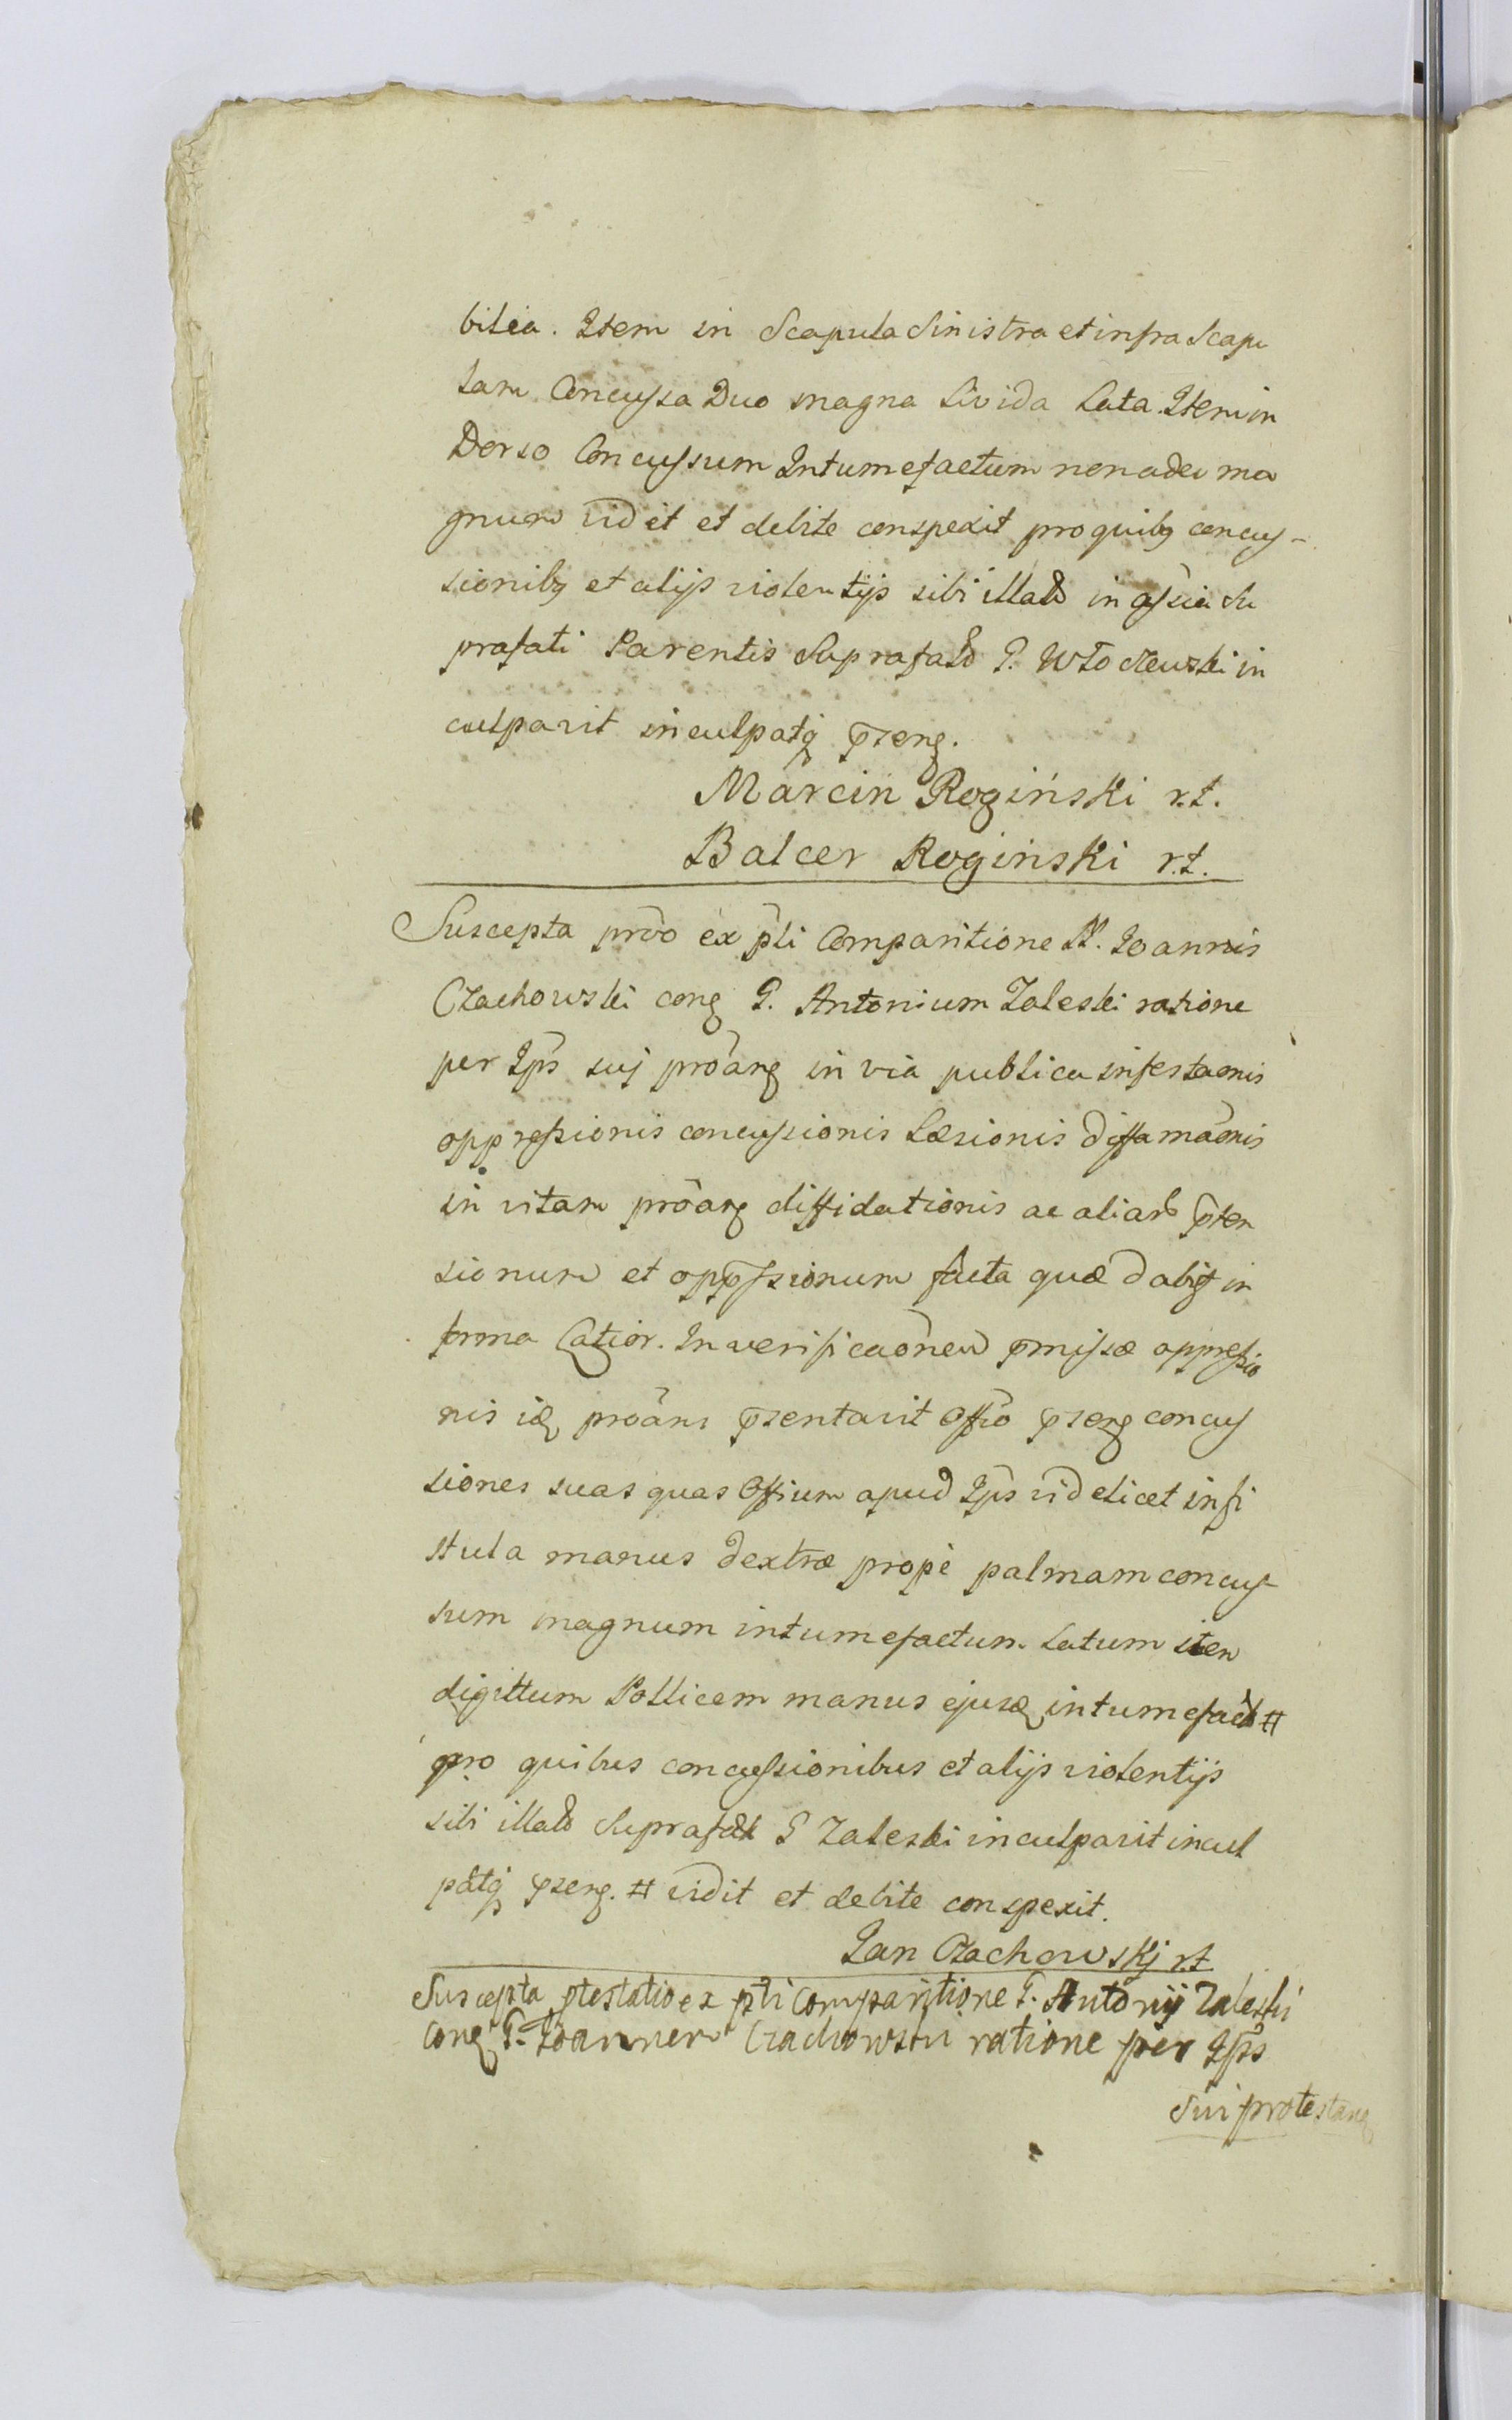 bilia. Item in Scapula Sinistra et infra Scapu
lam Concussa Duo magna Livida Lata. Item in
Dorso Concussum Intumefactum non adeo ma
gnum vidit et debite conspexit pro quibq concus-
sionibq et alijs violentijs sibi illat in assia Su
prafati Parentis Suprafat G. Włoczewski in
culpavit inculpatq pseng.
Marcin Rogiński r.t.
Balcer Roginski r.t.
Suscepta prõõ ex pti Comparitione N. Ioannis
Czachowski cong G. Antonium Zaleski ratione
per Ips suj proang in via publica infestaonis
oppressionis concussionis Læsionis diffamaonis
in vitam proang diffidationis ac aliar pten
sionum et oppssionum facta quæ dabit in
forma Latior. In verificaonem pmissæ oppressio
nis idq proans psentavit Offio pseng concus
siones suas quas Offium apud Ips videlicet in fi
stula manus dextræ propè palmam concus
sum magnum intumefactum Latum item
digittum Pollicem manus ejusd intumefact #
pro quibus concussionibus et alijs violentijs
sibi illat Suprafat G Zaleski inculpavit incul
patq pseng. # vidit et debite conspexit.
Jan Czachowskj r.t
Suscepta ptestatio ex pti comparitione G. Antonij Zaleski
cong G. Ioannem Czachowski ratione per Ips
Sui protestang